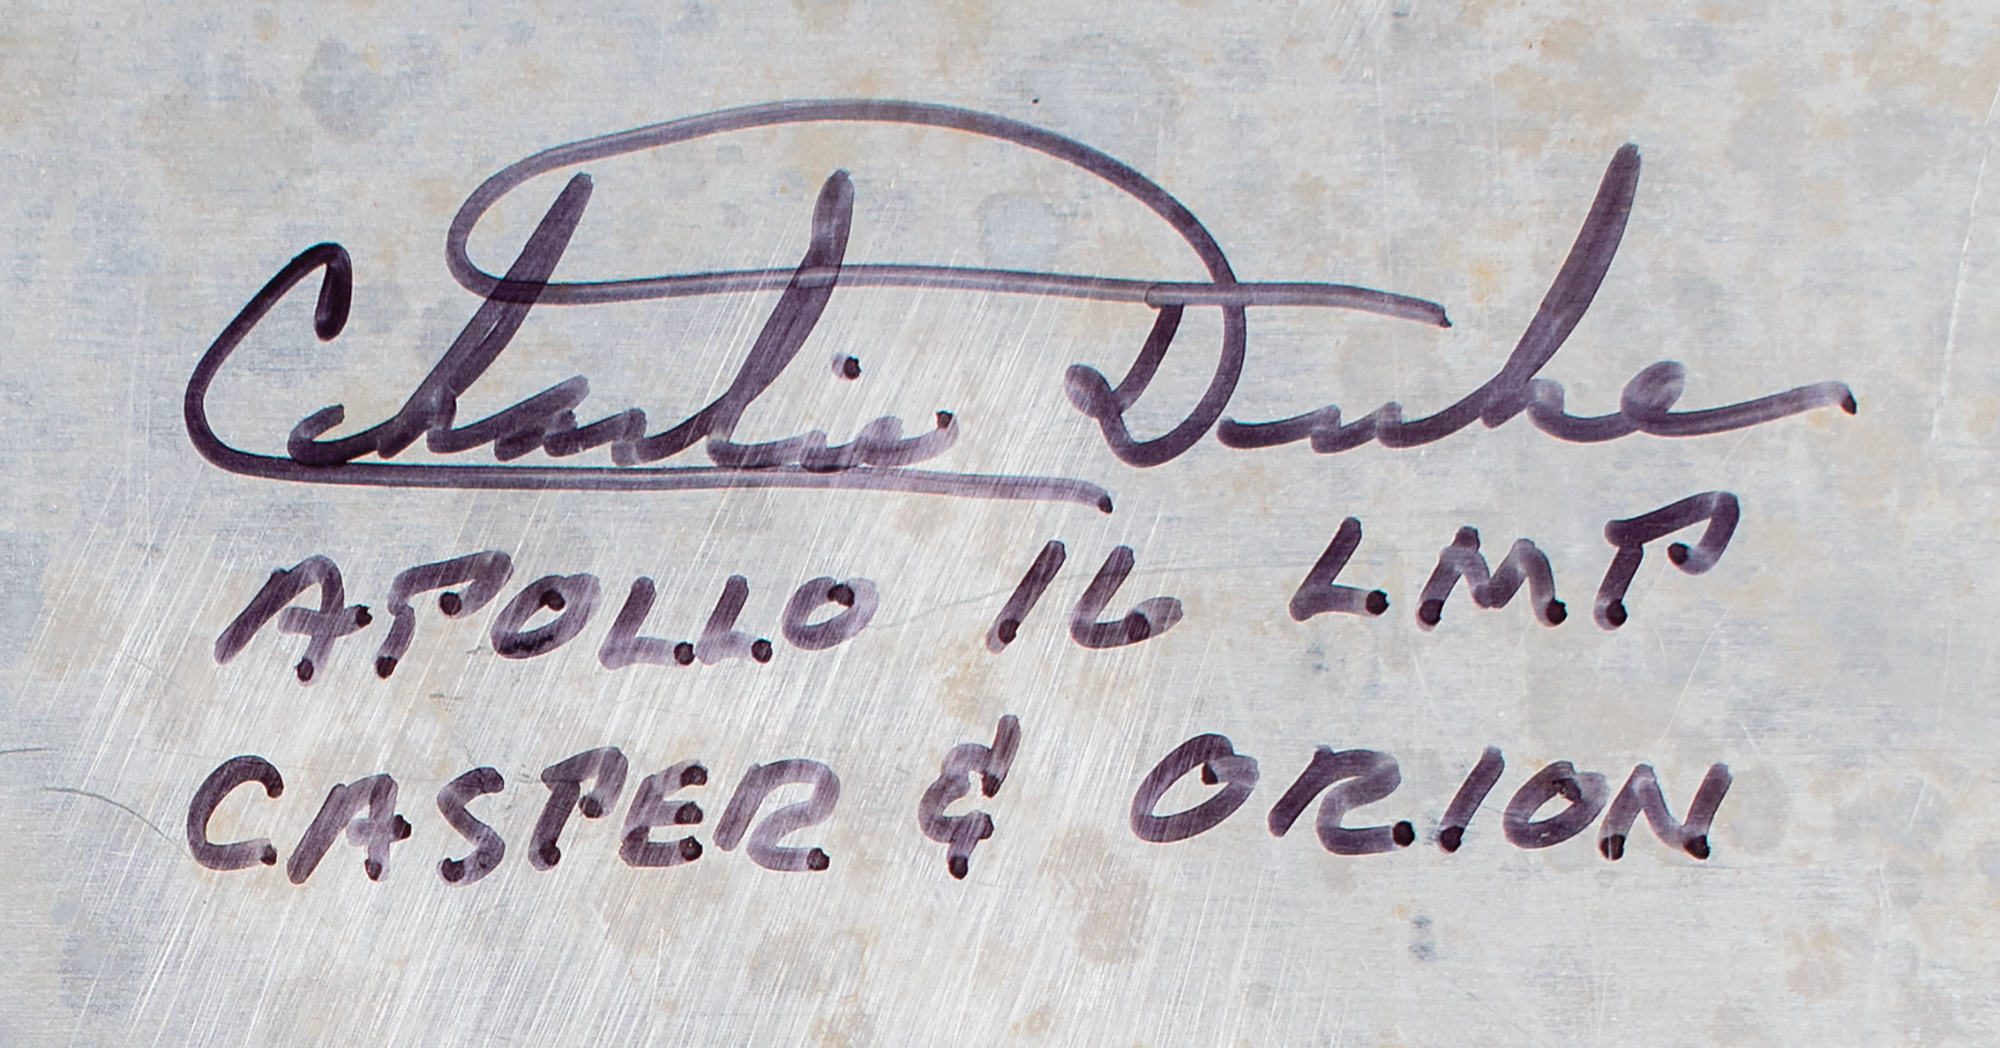 Charlie Duke
APOLLO 16 LMP
CASPER & ORION